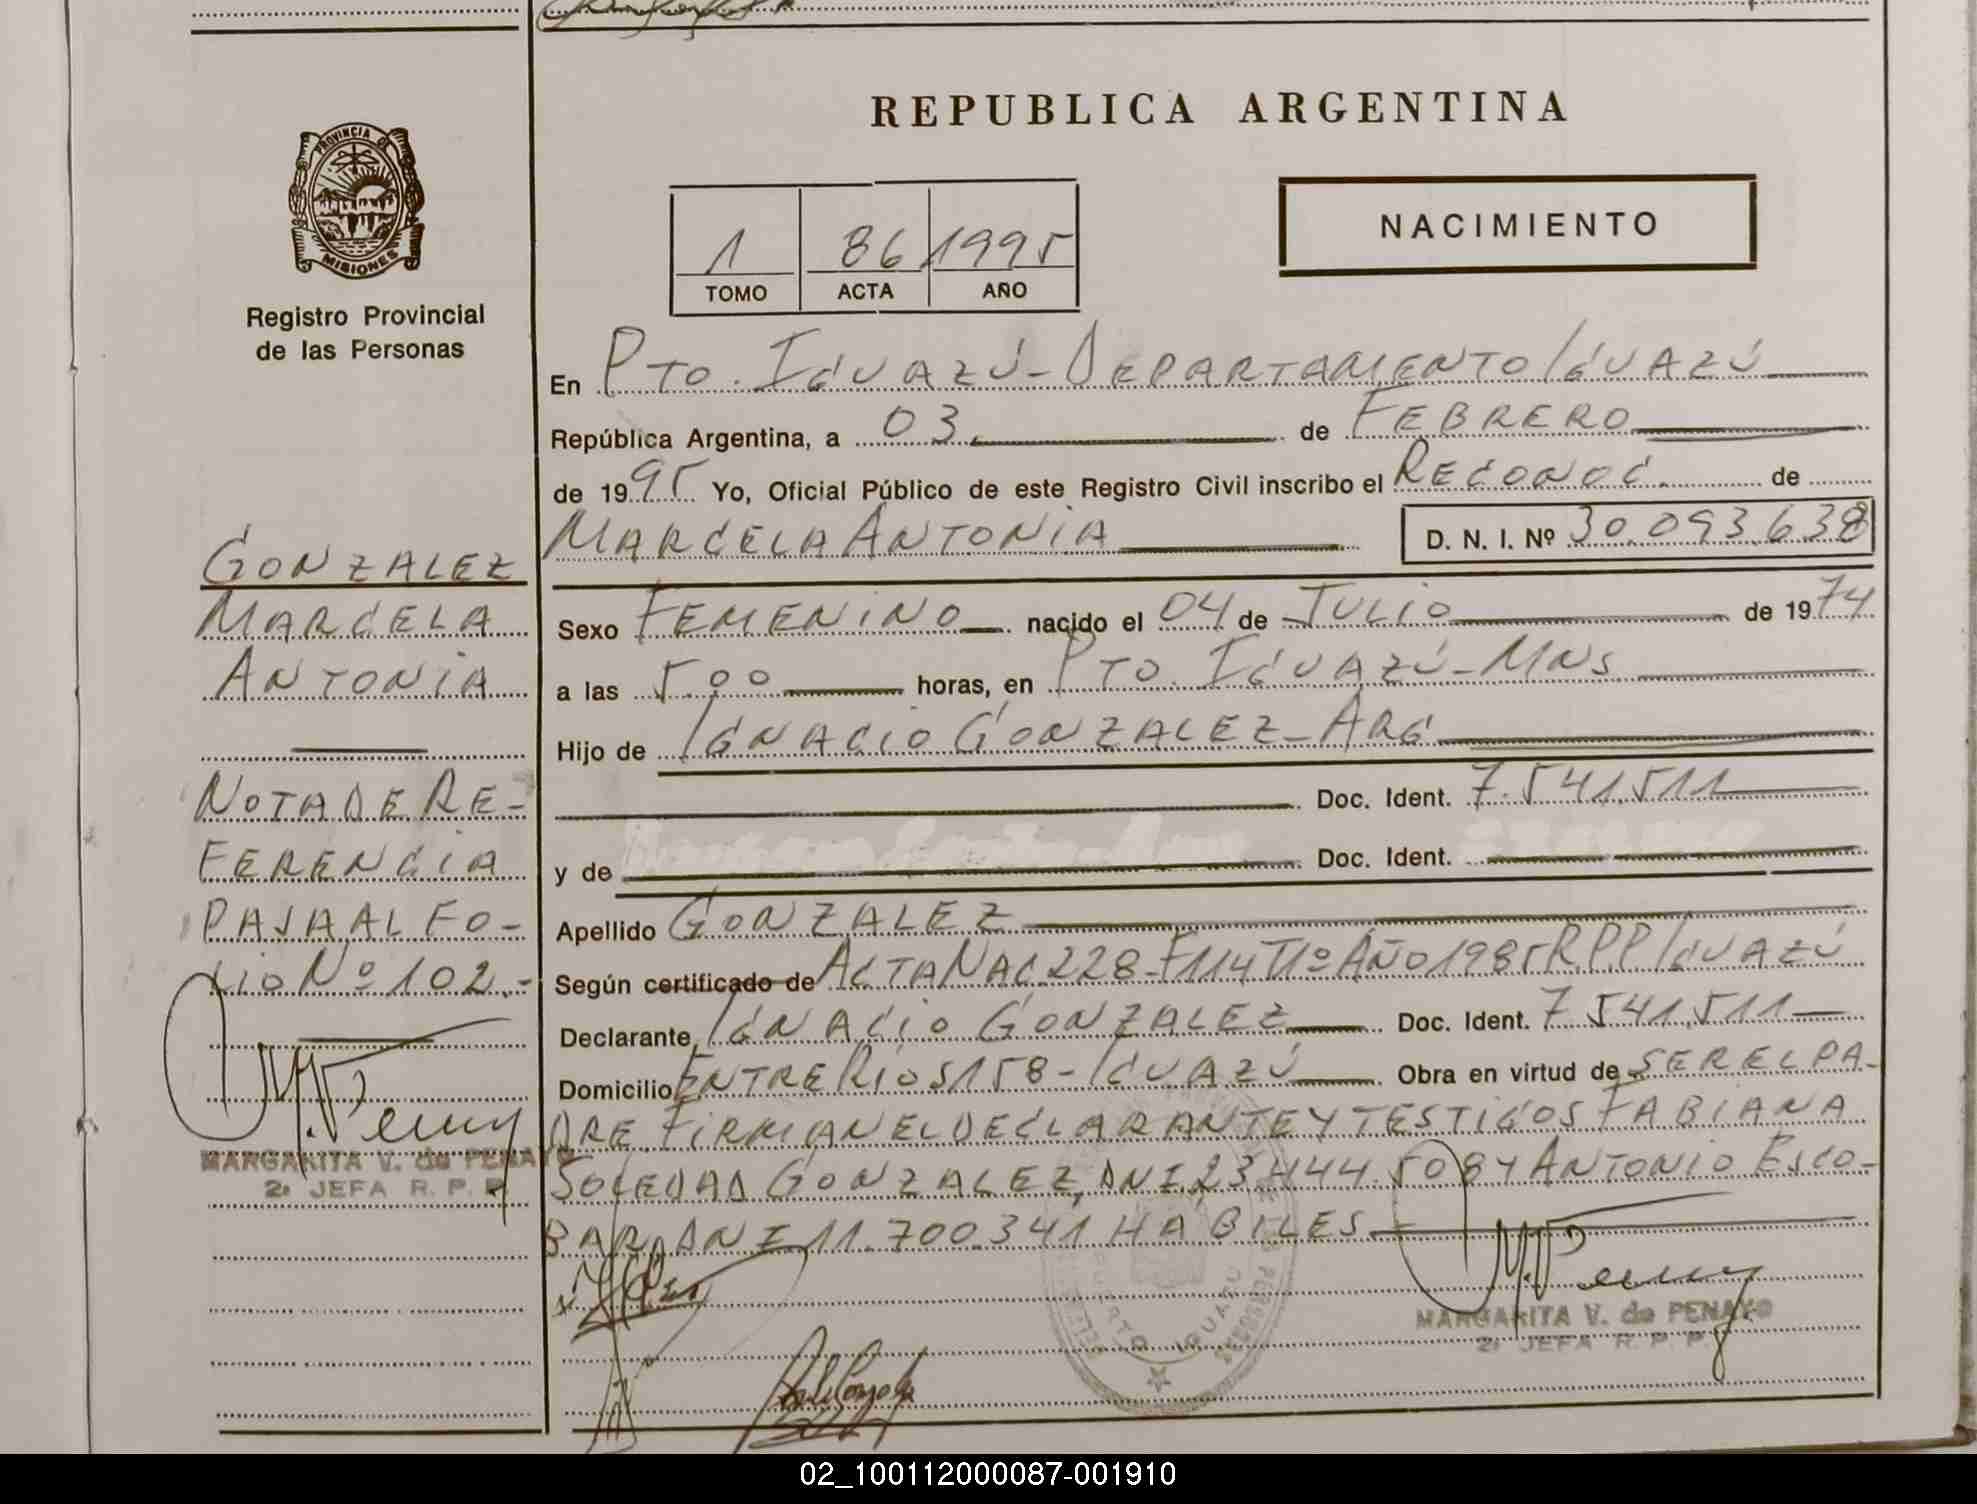 REPUBLICA ARGENTINA
PROVINCIA DE
MISIONES
Registro Provincial
de las Personas
1 86 1995
TOMO ACTA AÑO
NACIMIENTO
En PTO. IGUAZÚ - DEPARTAMENTO IGUAZÚ
República Argentina, a 03 de FEBRERO
de 1995 Yo, Oficial Público de este Registro Civil inscribo el RECONOC. de
MARCELA ANTONIA D. N. I. Nº 30.093.638
Sexo FEMENINO nacido el 04 de JULIO de 1974
a las 5.00 horas, en PTO. IGUAZÚ - MNS
Hijo de IGNACIO GONZALEZ - ARG
Doc. Ident. 7.541.511
y de Doc. Ident.
Apellido GONZALEZ
Según certificado de ACTA NAC. 228 - F 114 T 1º AÑO 1985 R.P.P. IGUAZÚ
Declarante IGNACIO GONZALEZ Doc. Ident. 7.541.511
Domicilio ENTRE RIOS 158 - IGUAZÚ Obra en virtud de SER EL PA-
DRE. FIRMAN EL DECLARANTE Y TESTIGOS FABIANA
SOLEDAD GONZALEZ, DNI. 23.444.508 Y ANTONIO ESCO-
BAR, DNI 11.700.341 HABILES
MARGARITA V. de PENAYO
2ª JEFA R. P. P.
GONZALEZ
MARCELA
ANTONIA
NOTA DE RE-
FERENCIA
PASA AL FO-
LIO Nº 102.-
MARGARITA V. de PENAYO
2ª JEFA R. P. P.
PUERTO IGUAZU
02_100112000087-001910